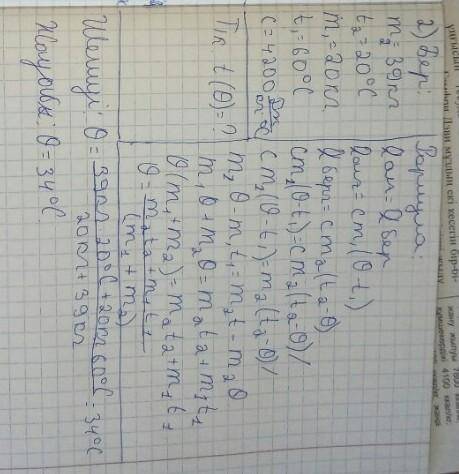 2) Бер:
m₂ = 39 кг
t₂ = 20°C
m₁ = 20 кг
t₁ = 60°C
c = 4200 Дж/кг·°C
Т/к t(θ) = ?
Формула:
Qал = Qбер
Qал = cm₁(θ - t₁)
Qбер = cm₂(t₂ - θ)
cm₁(θ - t₁) = cm₂(t₂ - θ) /
cm₁(θ - t₁) = m₂(t₂ - θ) /
m₁θ - m₁t₁ = m₂t - m₂θ
m₁θ + m₂θ = m₂t₂ + m₁t₁
θ(m₁ + m₂) = m₂t₂ + m₁t₁
θ = m₂t₂ + m₁t₁ / (m₁ + m₂)
Шешуі: θ = 39кг · 20°C + 20кг · 60°C / 20кг + 39кг = 34°C
Жауабы: θ = 34°C